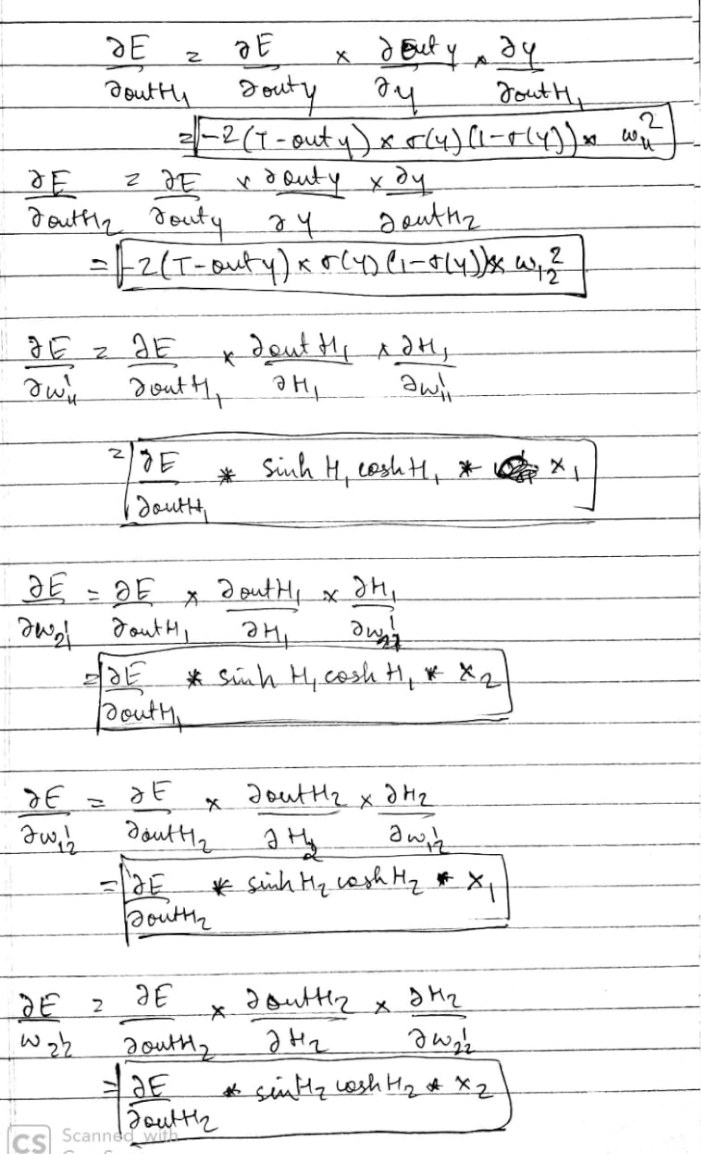 ∂E/∂outH₁ = ∂E/∂outy × ∂outy/∂y × ∂y/∂outH₁
= -2(T-outy) × σ(y)(1-σ(y)) × w₁₁²
∂E/∂outH₂ = ∂E/∂outy × ∂outy/∂y × ∂y/∂outH₂
= -2(T-outy) × σ(y)(1-σ(y)) × w₁₂²
∂E/∂w₁₁¹ = ∂E/∂outH₁ × ∂outH₁/∂H₁ × ∂H₁/∂w₁₁¹
= ∂E/∂outH₁ * sinh H₁ cosh H₁ * x₁
∂E/∂w₂₁¹ = ∂E/∂outH₁ × ∂outH₁/∂H₁ × ∂H₁/∂w₂₁¹
= ∂E/∂outH₁ * sinh H₁ cosh H₁ * x₂
∂E/∂w₁₂¹ = ∂E/∂outH₂ × ∂outH₂/∂H₂ × ∂H₂/∂w₁₂¹
= ∂E/∂outH₂ * sinh H₂ cosh H₂ * x₁
∂E/w₂₂¹ = ∂E/∂outH₂ × ∂outH₂/∂H₂ × ∂H₂/∂w₂₂¹
= ∂E/∂outH₂ * sinH₂ cosh H₂ * x₂
CS Scanned with